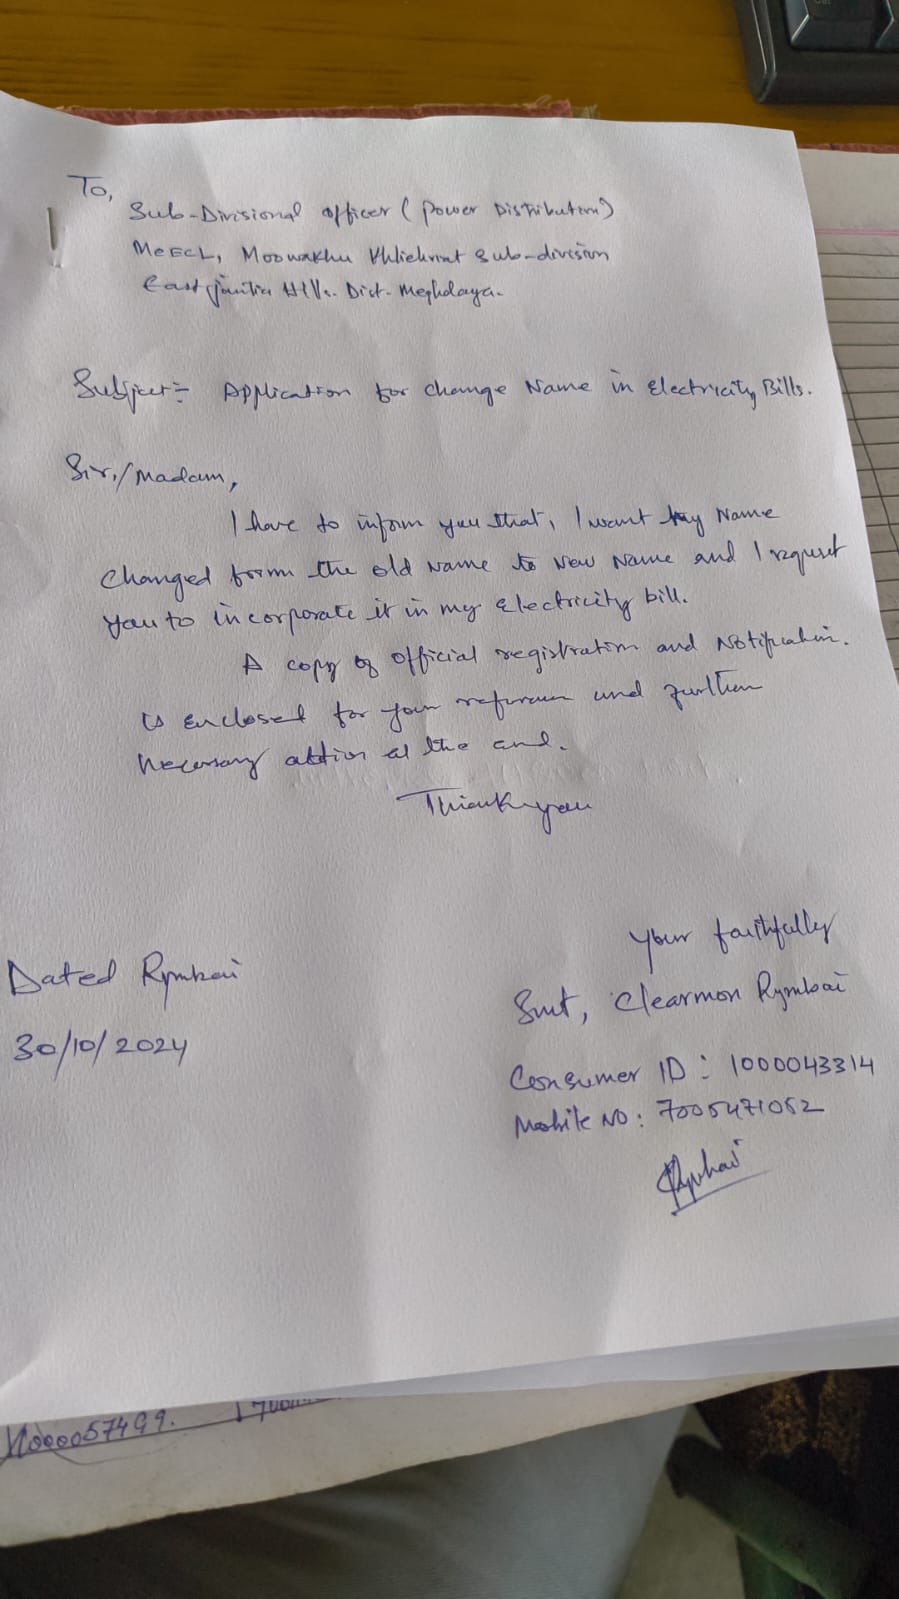 To,
Sub-Divisional officer (Power Distribution)
MeECL, Moowakhu Khliehriat Sub-division
East Jaintia Hills. Dict- Meghalaya.
Subject:- Application for change Name in Electricity Bills.
Sir,/Madam,
I have to inform you that, I want my Name
changed form the old Name to New Name and I request
you to incorporate it in my Electricity bill.
A copy of official registration and Notification.
is enclosed for your reference and further
necessary action at the end.
Thankyou
Your faithfully
Dated Rymbai
Smt, Clearmon Rymbai
30/10/2024
Consumer ID : 1000043314
Mobile NO : 7005471052
Rymbai
1000057499.